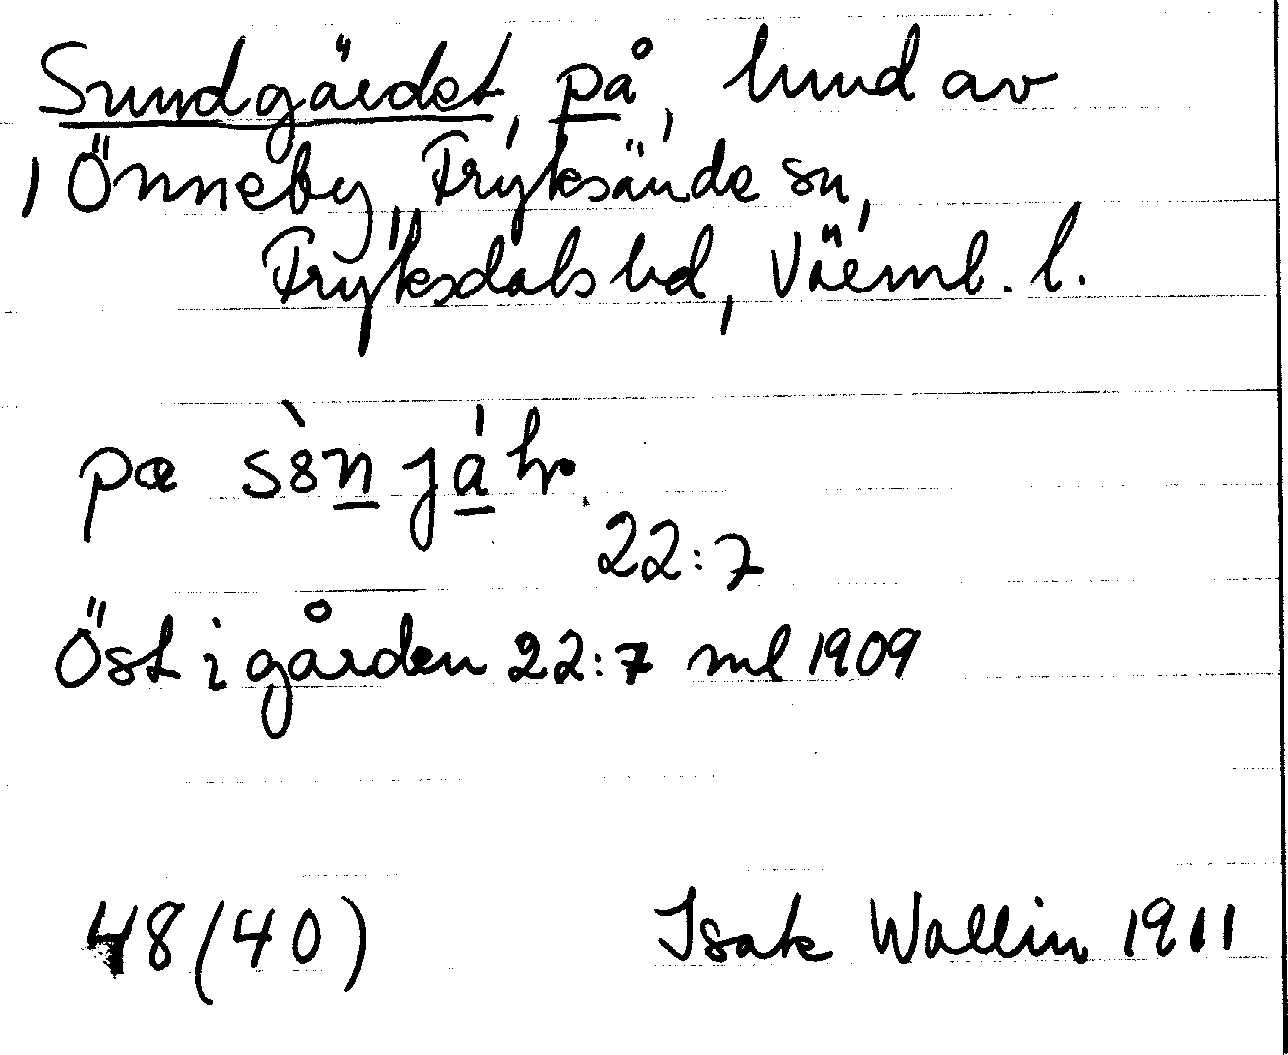 Sundgärdet, på, hmd av
Önneby, Fryksände sn,
Fryksdals hd, Värml. l.
pæ
22:7
Öst i gården 22:7 ml 1909
48(40) Isak Wallin 1911